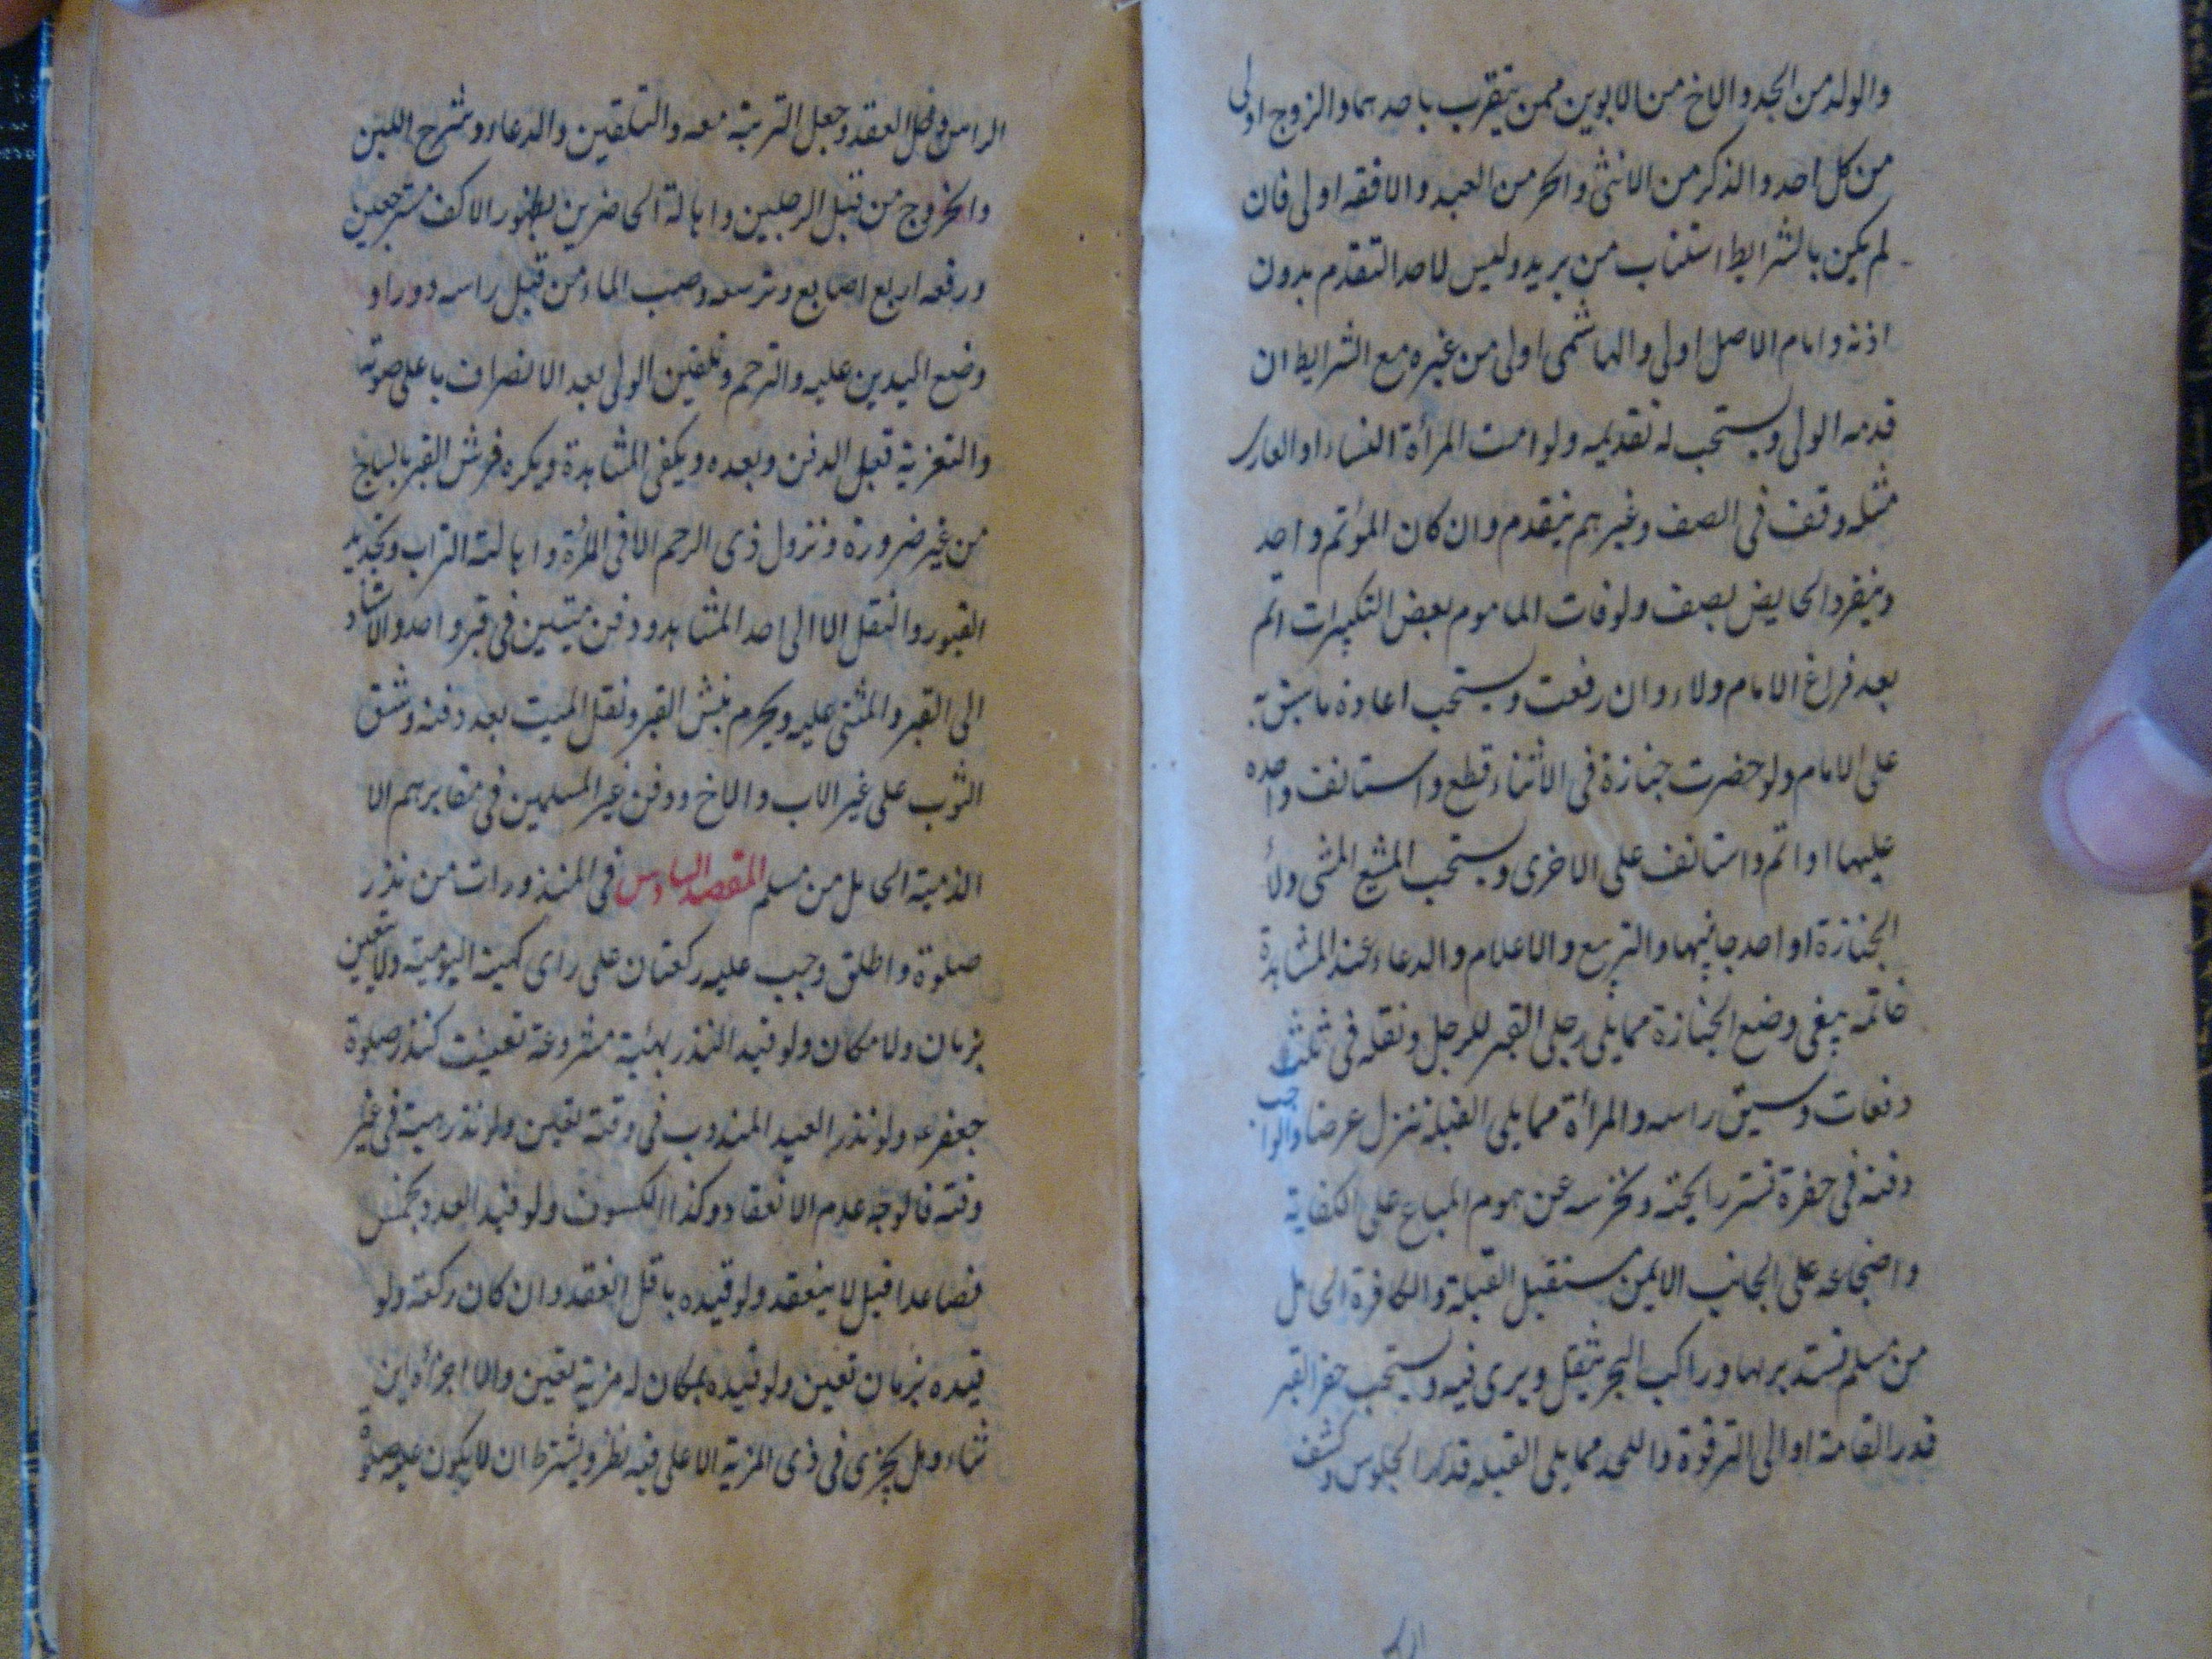 والولد من الجد والاخ من الابوين ممن يتقرب باحدهما والزوج اولى
من كل احد والذكر من الانثى والحر من العبد والافقه اولى فان
لم يكن بالشرايط استناب من يريد وليس لاحد التقدم بدون
اذنه وامام الاصل اولى والهاشمى اولى من غيره مع الشرايط ان
قدمه الولى ويستحب له تقديمه ولو امت المرأة النساء او العارى
مثله وقف فى الصف وغيرهم يتقدم وان كان المؤتم واحد
وينفرد الحايض بصف ولو فات الماموم بعض التكبيرات اتم
بعد فراغ الامام ولاء وان رفعت ويستحب اعادة ما سبق به
على الامام ولو حضرت جنازة فى الاثناء قطع واستانف واحدة
عليهما او اتم واستانف على الاخرى ويستحب المشيع المشى وراء
الجنازة او احد جانبيها والتربيع والاعلام والدعاء عند المشاهدة
خاتمه ينبغى وضع الجنازة مما يلى رجلى القبر للرجل ونقله فى ثلث
دفعات وسبق راسه والمرأة مما يلى القبلة تنزل عرضا والواجب
دفنه فى حفرة تستر رايحته وتحرسه عن هوم السباع على الكفاية
واضجاعه على الجانب الايمن مستقبل القبلة والكافرة الحامل
من مسلم تستدبر بها وراكب البحر يثقل ويرمى فيه ويستحب حفر القبر
قدر القامة او الى الترقوة واللحد مما يلى القبله قدر الجلوس وكشف
الراس وحل العقد وجعل التربة معه والتلقين والدعاء وشرح اللبن
والخروج من قبل الرجلين واهالة الحاضرين بظهور الاكف مسترجعين
ورفعه اربع اصابع وتربيعه وصب الماء من قبل راسه دورا و
وضع اليدين عليه والترحم وتلقين الولى بعد الانصراف باعلى صوته
والتعزية قبل الدفن وبعده ويكفى المشاهدة ويكره فرش القبر بالساج
من غير ضرورة ونزول ذى الرحم الا فى المرأة واهالته التراب وتجديد
القبور والنقل الا الى احد المشاهد ودفن ميتين فى قبر واحد والاستناد
الى القبر والمشى عليه ويحرم نبش القبر ونقل الميت بعد دفنه وشق
الثوب على غير الاب والاخ ودفن غير المسلمين فى مقابرهم الا
الذمية الحامل من مسلم المقصد السادس فى المنذورات من نذر
صلوة واطلق وجب عليه ركعتان على راى كهيئة اليومية ولا يتعين
بزمان ولا مكان ولو قيد النذر بهيئة مشروعة تعينت كنذر صلوة
جعفر ع ولو نذر العيد المندوب فى وقته تعين ولو نذر هيئة فى غير
وقته فالوجه عدم الانعقاد وكذا الكسوف ولو قيد العدد بخمس
فصاعدا قيل لا ينعقد ولو قيده باقل انعقد وان كان ركعة ولو
قيده بزمان تعين ولو قيده بمكان له مزية تعين والا اجزأه اين
شاء وهل يجزى فى ذى المزية الاعلى فيه نظر ويشترط ان لا يكون عليه صلوة